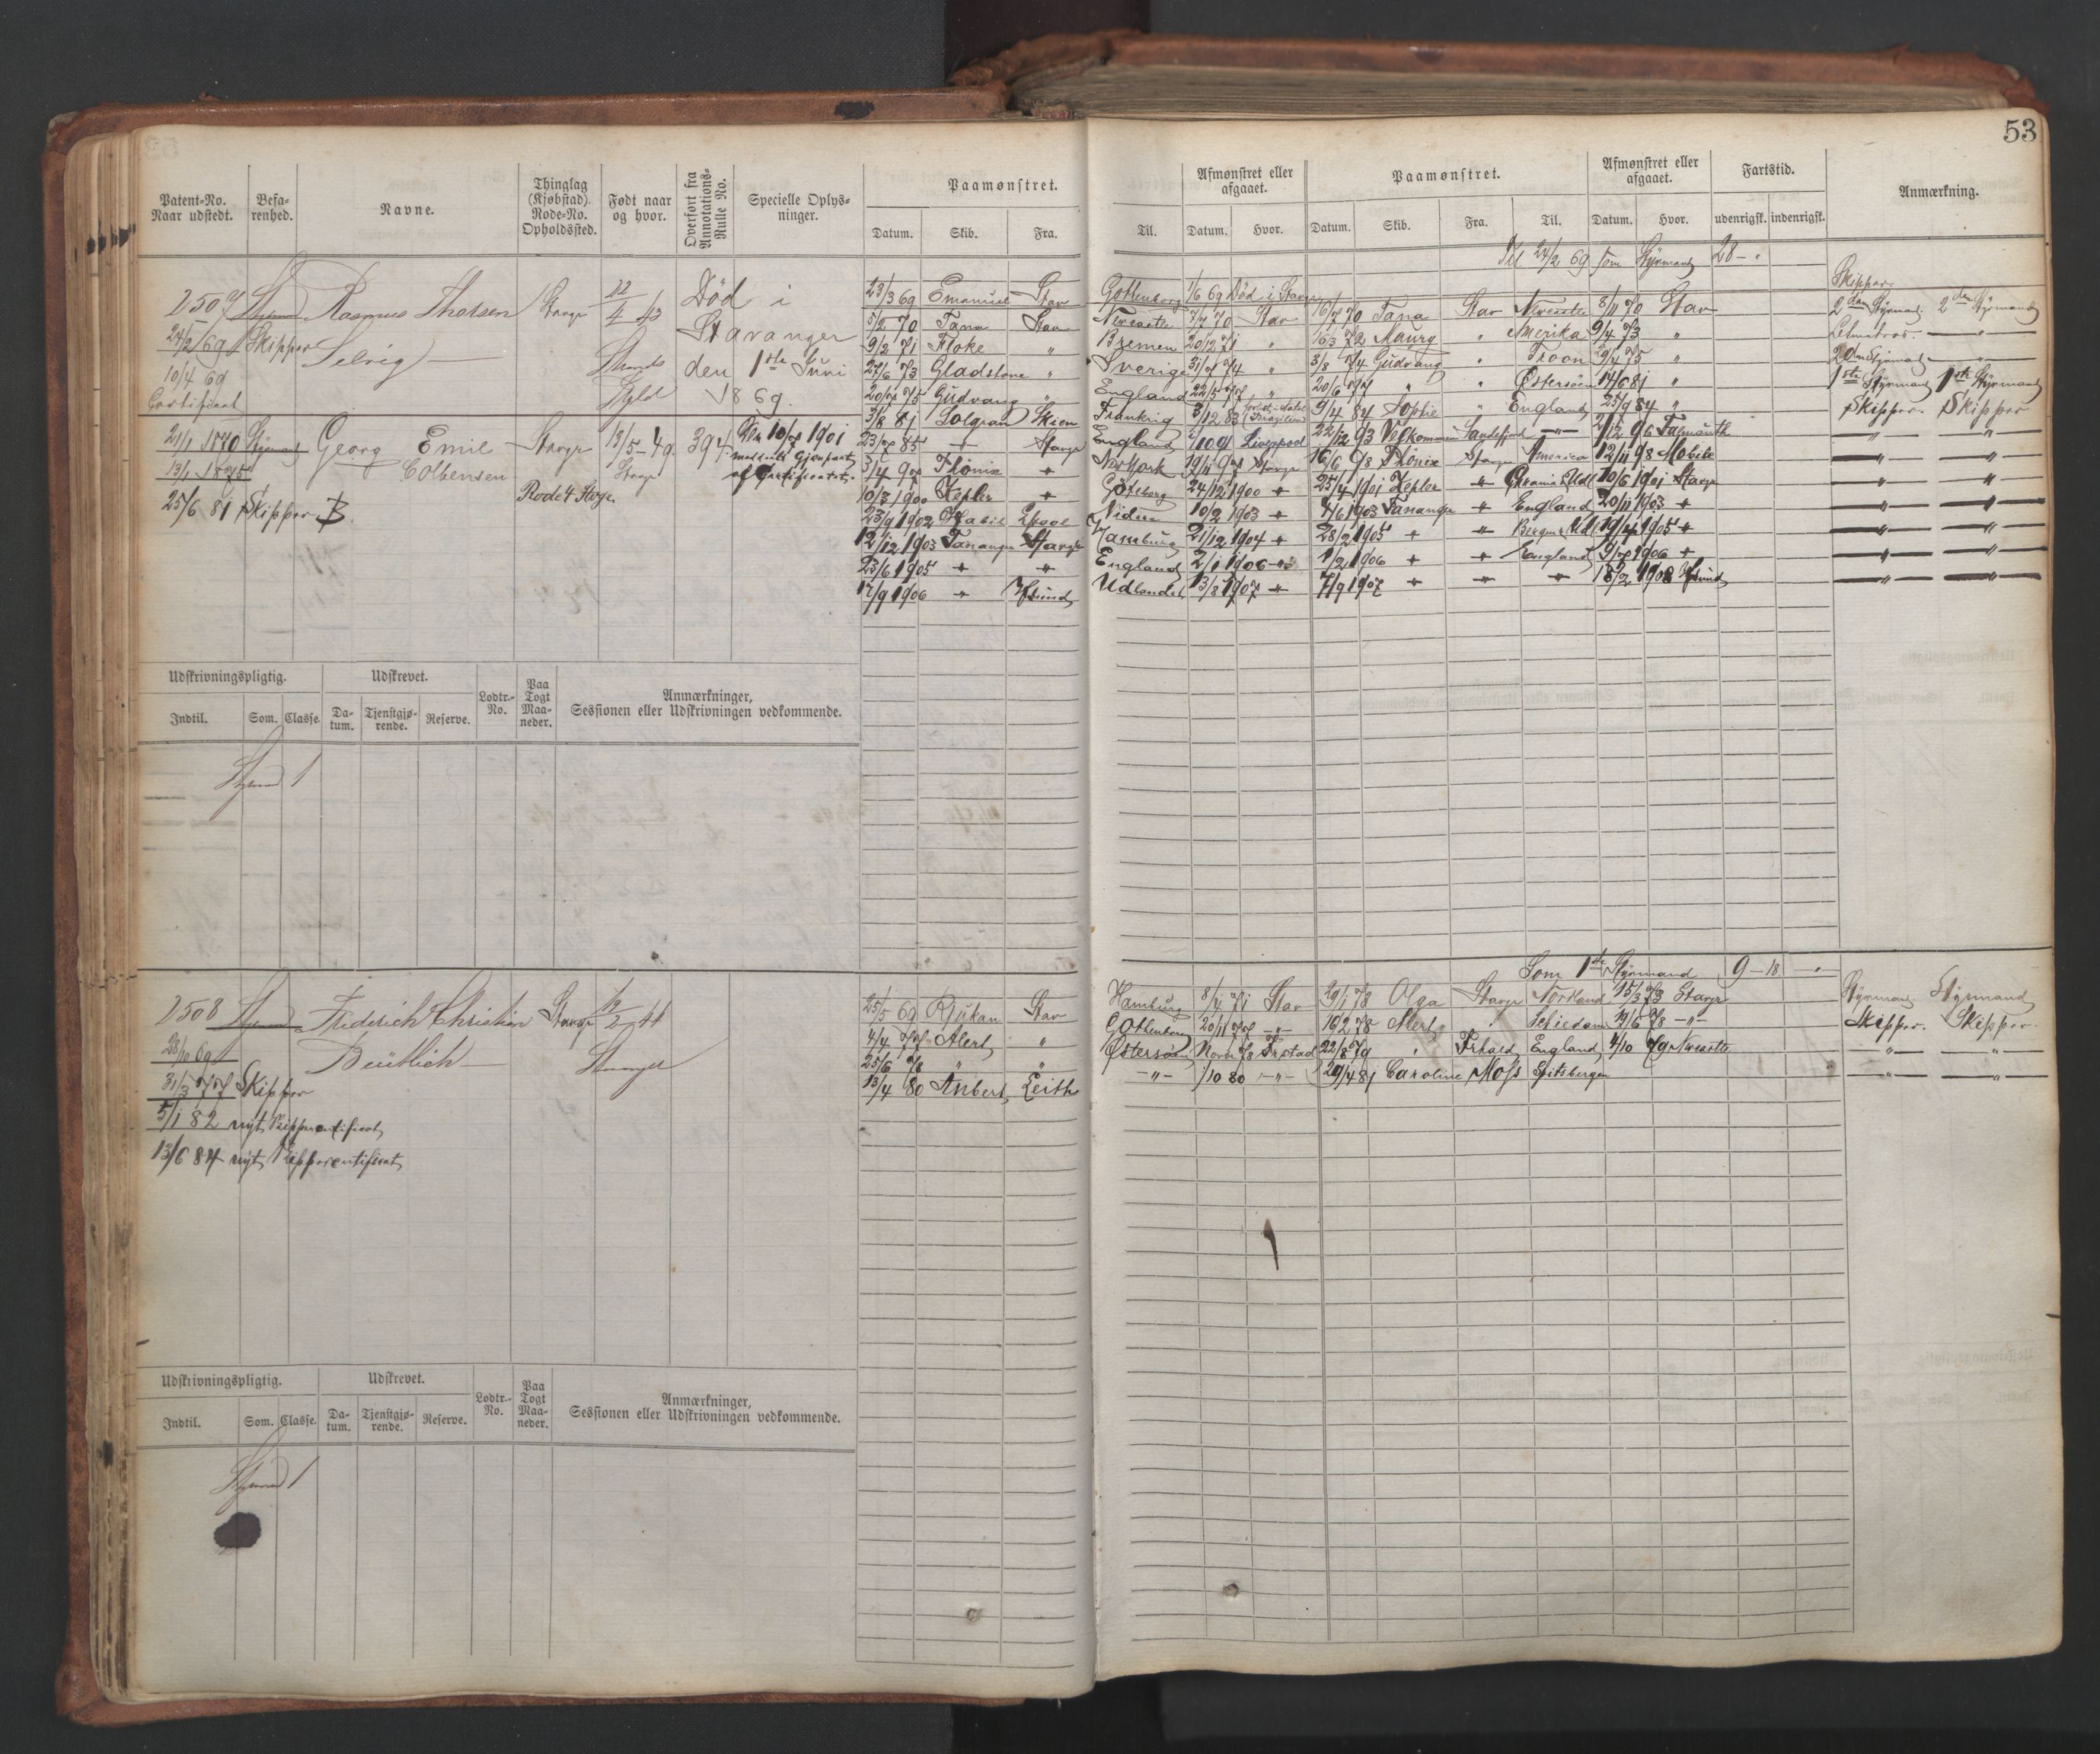 53
Patent-No. Naar udstedt.
Befarenhed.
Navne.
Thinglag (Kjøbstad). Rode-No. Opholdssted.
Født naar og hvor.
Overført fra Annotations-Rulle No.
Specielle Oplysninger.
Paamønstret.
Datum. Skib. Fra. Til.
Afmønstret eller afgaaet.
Datum. Hvor.
Paamønstret.
Datum. Skib. Fra. Til.
Afmønstret eller afgaaet.
Datum. Hvor.
Fartstid.
udenrigsk. indenrigsk.
Anmærkning.
Til 24/2 69 som Styrmand 28 -
2507 Rasmus Thorsen Stavgr 22/4 43 Død i
24/2 69 Skipper Selvig Stavanger
10/4 69 den 1ste Juni
Certifikat 1869.
21/1 1870 Styrmand Georg Emil Stavgr 13/5 - 49 394
13/1 1875 Colbensen Stavgr
25/6 81 Skipper B. Rode 4 Stvgr.
Den 10/7 1901 meddelt Gjenpart af Certifikatet.
Skipper
23/3 69 Emanuel Stav Gottenborg 1/6 69 Død i Stavgr
5/2 70 Tana Stav Newcastle 7/7 70 Stav 16/7 70 Tana Stav Newcastle 8/11 70 Stav 2den Styrmand 2den Styrmand
9/2 71 Floke " Bremen 20/12 71 " 16/3 72 Maury " Amerika 9/4 73 "
27/6 73 Gladstone " Sverige 31/7 74 " 3/8 74 Gudvang " Troon 29/4 75 "
20/7 75 Gudvang " England 22/5 77 " 20/6 77 " " Østersøen 14/6 81 " 1ste Styrmand 1ste Styrmand
3/8 81 Solgran Skien Frankrig 3/12 83 9/4 84 Sophie " England 25/9 84 " Skipper. Skipper
23/7 85 - " - Stavgr England Liverpool 22/12 93 Velkommen Sandefjord - " - 2/12 96 Falmouth - " - - " -
3/4 97 Fönix " New York 19/11 97 Stavgr 16/6 98 Fönix Stavgr America 12/11 98 Mobile - " - - " -
10/3 1900 Kepler " Göteborg 24/12 1900 " 25/4 1901 Kepler " 10/6 1901 Stavgr - " - - " -
23/9 1902 Lpool 10/2 1903 " 4/6 1903 Tananger " England 20/11 1903 " - " - - " -
12/12 1903 Tananger Stavgr Hamburg 21/12 1904 " 28/2 1905 " " 19/4 1905 " - " - - " -
23/6 1905 " " England 2/1 1906 " 1/2 1906 " " England 9/7 1906 " - " - - " -
17/9 1906 " Udlandet 13/8 1907 " 7/9 1907 " " " 18/2 1908 - " - - " -
Udskrivningspligtig. Udskrevet. Lodtr.-No. Paa Togt Maaneder. Anmærkninger, Sessionen eller Udskrivningen vedkommende.
Indtil. Som. Classe. Datum. Tjenstgjørende. Reserve.
Styrmd 1
Som 1ste Styrmand 9 - 18 - "
2508 Styrmd Frederich Christian Stavgr 19/2 44
Stavanger
31/3 77 Skipper
5/1 82 nyt Skippercertificat
13/6 84 nyt Skippercertificat
25/5 69 Rjukan Stav Hamburg 8/4 71 Stav 29/1 73 Olga Stavgr Nordland 15/3 73 Stavgr Styrmand Styrmand
4/4 77 Alert " Gottenborg 20/11 77 - " - 16/2 78 Alert " Schiedam 19/6 78 - " - Skipper. Skipper.
25/6 78 " " Østersøen Novr 78 Frstad 22/8 79 " Frhald England 4/10 79 Newcastle - " - - " -
13/4 80 Anbert Leith - " - 1/10 80 - " - 29/4 81 Caroline Moss Spitsbergen - " - - " -
Udskrivningspligtig. Udskrevet. Lodtr.-No. Paa Togt Maaneder. Anmærkninger, Sessionen eller Udskrivningen vedkommende.
Indtil. Som. Classe. Datum. Tjenstgjørende. Reserve.
Styrmd 1